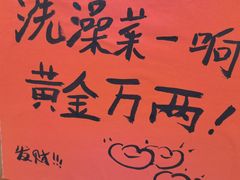 洗澡菜一响
黄金万两！
发财!!!